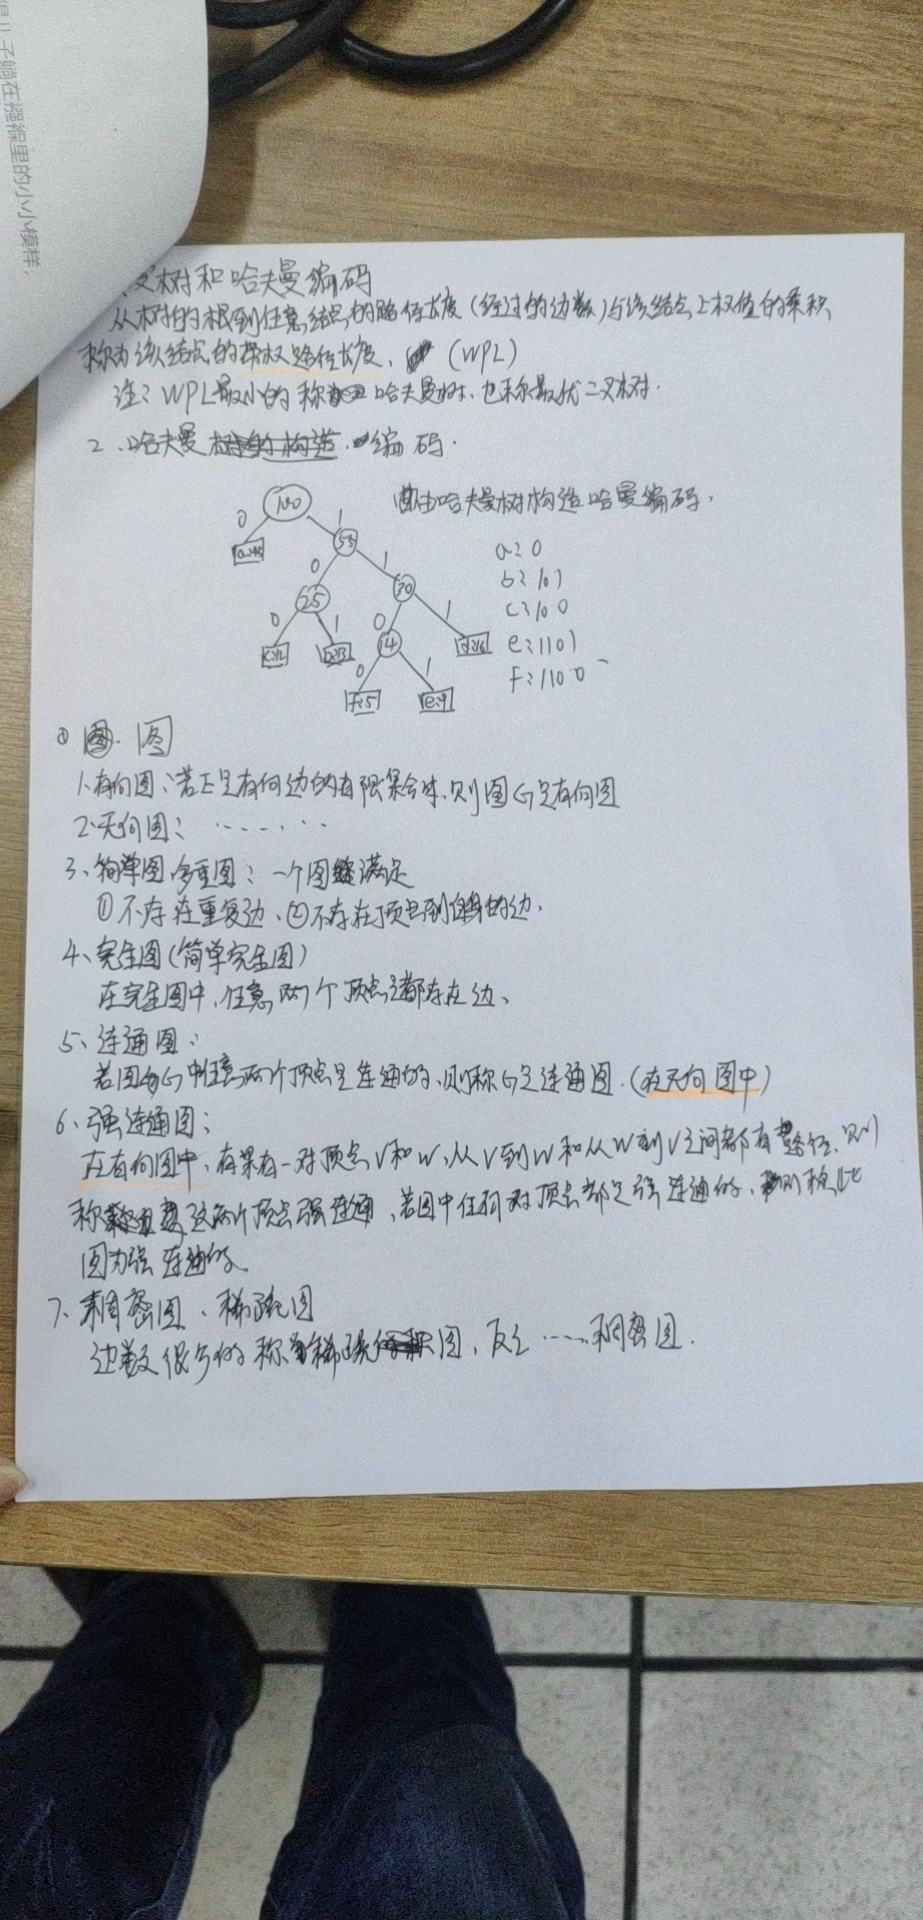 得儿子躺在襁褓里的小小模样.
叉树和哈夫曼编码
从树的根到任意结点的路径长度(经过的边数)与该结点上权值的乘积
称为该结点的带权路径长度、(WPL)
注:WPL最小的称 哈夫曼树.也称最优二叉树.
2、哈夫曼树的构造 编码.
由哈夫曼树构造哈曼编码.
100
0 1
a:45 55
0 1
25 30
0 1 0 1
c:12 b:13 14 d:16
0 1
f:5 e:9
a:0
b:101
c:100
e:1101
f:1100
图
1.有向图:若E是有向边的有限集合时.则图G是有向图
2.无向图:.......
3、简单图.多重图:一个图满足
①不存在重复边、②不存在顶点到自身的边.
4、完全图(简单完全图)
在完全图中,任意两个顶点之都存在边、
5、连通图:
若图G中任意两个顶点是连通的、则称G是连通图.(在无向图中)
6、强连通图:
在有向图中、有果有一对顶点V和W,从V到W和从W到V之间都有路径.则
称 这两个顶点强连通,若图中任何对顶点都是强连通的、则称此
图为强连通的、
7、稠密图、稀疏图
边数很少的称 稀疏图、反之......稠密图.